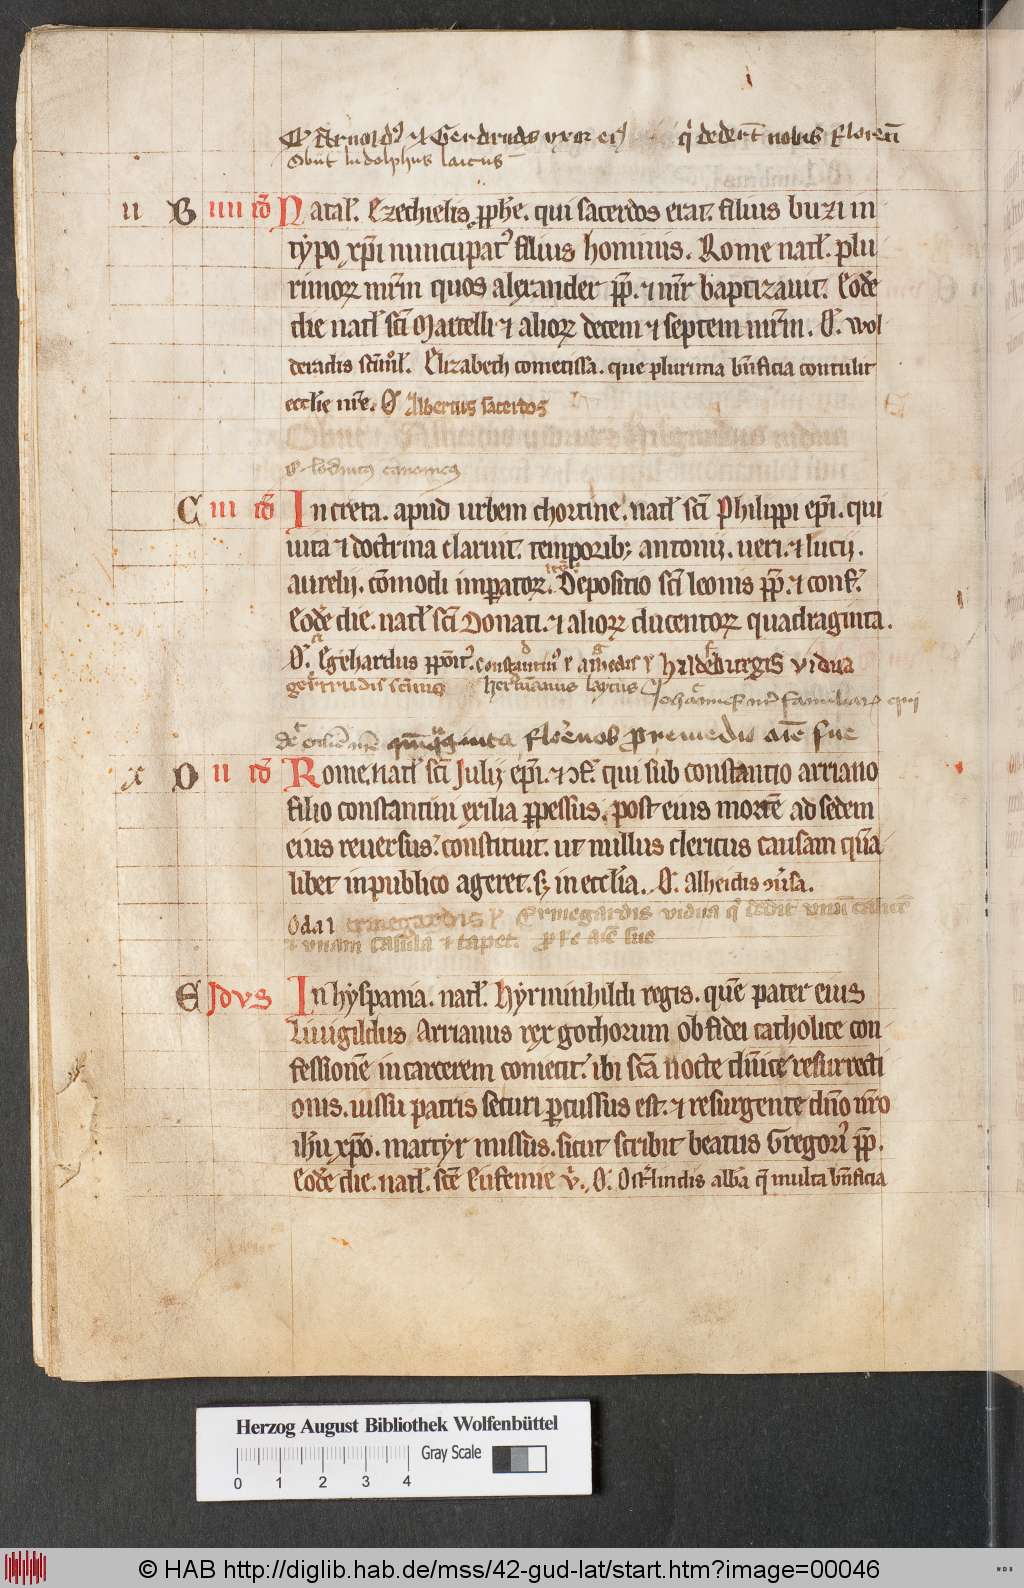 O Arnold⁹ ⁊ Gerdrudis uxor ei⁹ q̓ deder̄t nobis floren̄
Obiit ludolphus laicus
ii B iiii id̄ Natal̓. Ezechielis. pph̄e. qui sacerdos erat. filius buzi in
typo xp̄i nuncupat⁹ filius hominis. Rome natl̓. plu
rimoꝝ mr̄m quos alexander pp̄. ⁊ mr̄ baptizauit. Eodē
die natl̓ sc̄i Martelli ⁊ alioꝝ decem ⁊ septem mr̄m. O. wol
deradis sc̄im̄l̓. Elizabeth cometissa. que plurima bn̄ficia contulit
eccl̄ie nr̄e. O Albertus sacerdos
O. canonic⁹
C iii id̄ In creta. apud urbem chortine. natl̓ sc̄i Philippi ep̄i. qui
uita ⁊ doctrina claruit. temporib; antonij. ueri. ⁊ lucij.
aurelij. cōmodi imperatoꝝ. Depositio sc̄i leonis pp̄. ⁊ conf̄.
Eodē die. natl̓ sc̄i Donati. ⁊ alioꝝ ducentoꝝ quadraginta.
O. Egehardus pp̄oit⁹. Constantin⁹ hildeburgis vidua
gertrudis hermannus laycus Johannes familiar qui
de eccl̄ie nr̄e quinquaginta florenos pro remedio aīe sue
x D ii id̄ Rome. natl̓ sc̄i Julij ep̄i. ⁊ ꝯf̄. qui sub constantio arriano
filio constantini exilia ꝑpessus. post eius mortē ad sedem
eius reuersus. constituit. ut nullus clericus causam quā
libet in publico ageret. s; in eccl̄ia. O. Alheidis ꝯuersa.
Odal ermegardis Ermegardis vidua q̄ dedit unū calicē
⁊ vnam casulā ⁊ tapet. aīe sue
E Jdvs In hyspania. natl̓. Hyrminhildi regis. quē pater eius
Liuigildus Arrianus rex gothorum ob fidei catholice con
fessionē in carcerem coniecit. ibi sc̄a nocte dn̄ice resurrecti
onis. iussu patris securi ꝑcussus est. ⁊ resurgente dn̄o nr̄o
ih̄u xp̄o. martyr missus. sicut scribit beatus Gregori⁹ pp̄.
Eodē die. natl̓. sc̄e Eufemie v̓. O. Osterlindis abb̄a q̄ multa bn̄ficia
Herzog August Bibliothek Wolfenbüttel
Gray Scale
0 1 2 3 4
© HAB http://diglib.hab.de/mss/42-gud-lat/start.htm?image=00046